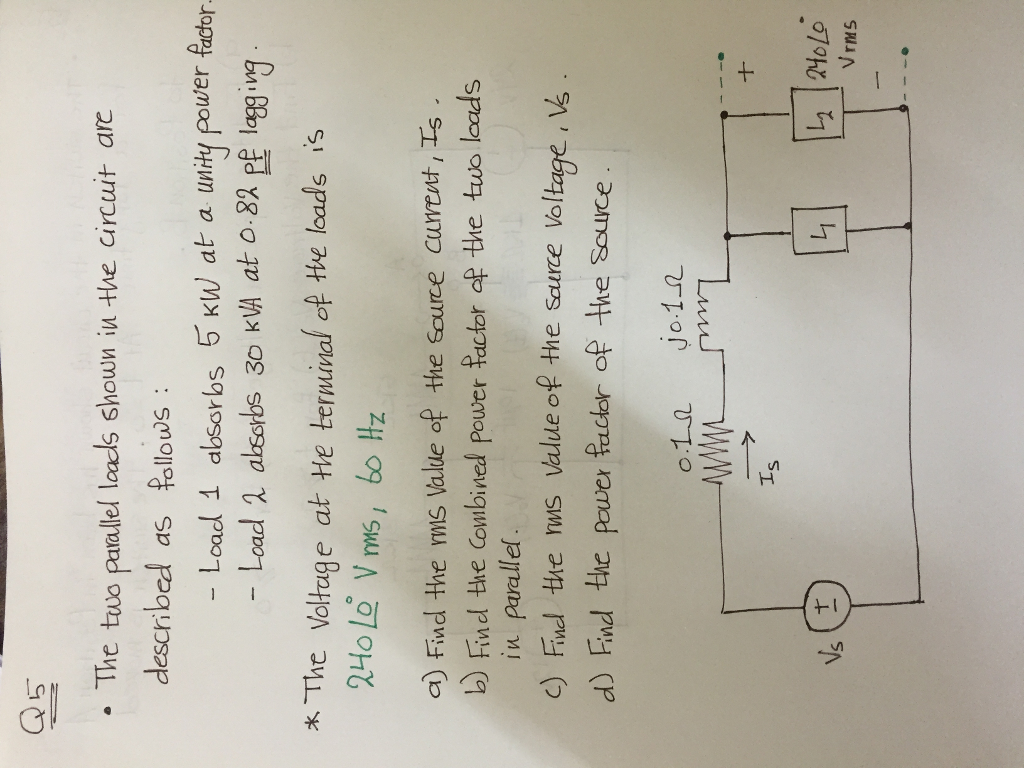 Q5
• The two parallel loads shown in the circuit are
described as follows :
- Load 1 absorbs 5 KW at a unity power factor.
- Load 2 absorbs 30 KVA at 0.82 pf lagging.
* The Voltage at the terminal of the loads is
240∠0° V rms, 60 Hz
a) Find the rms Value of the source current, Is.
b) Find the combined power factor of the two loads
in parallel.
c) Find the rms value of the source voltage, Vs.
d) Find the power factor of the source.
0.1Ω j0.1Ω
Is
Vs
+
-
L1
L2
+
240∠0°
Vrms
-